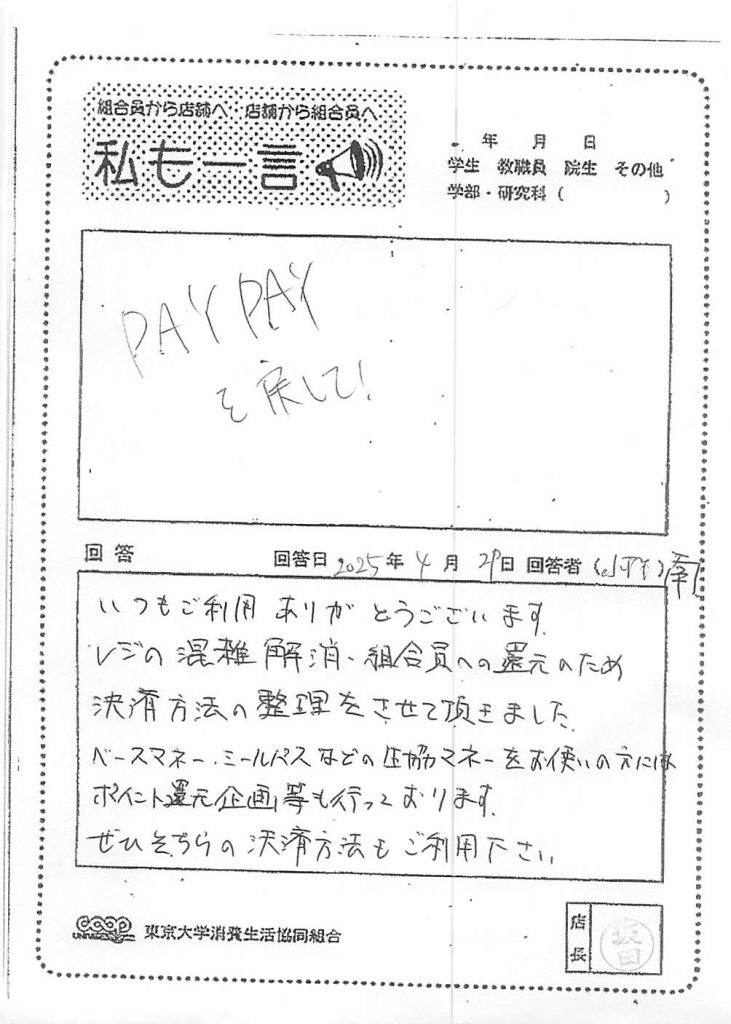 組合員から店舗へ 店舗から組合員へ
私も一言
年 月 日
学生 教職員 院生 その他
学部・研究科 ( )
PAYPAY
を戻して!
回答 回答日 2025年 4月 29日 回答者
いつもご利用ありがとうございます。
レジの混雑解消、組合員への還元のため
決済方法の整理をさせて頂きました。
ベースマネー、ミールパスなどの生協マネーをお使いの方には
ポイント還元企画等も行っております。
ぜひそちらの決済方法もご利用下さい。
coop
東京大学消費生活協同組合
店長
坂田